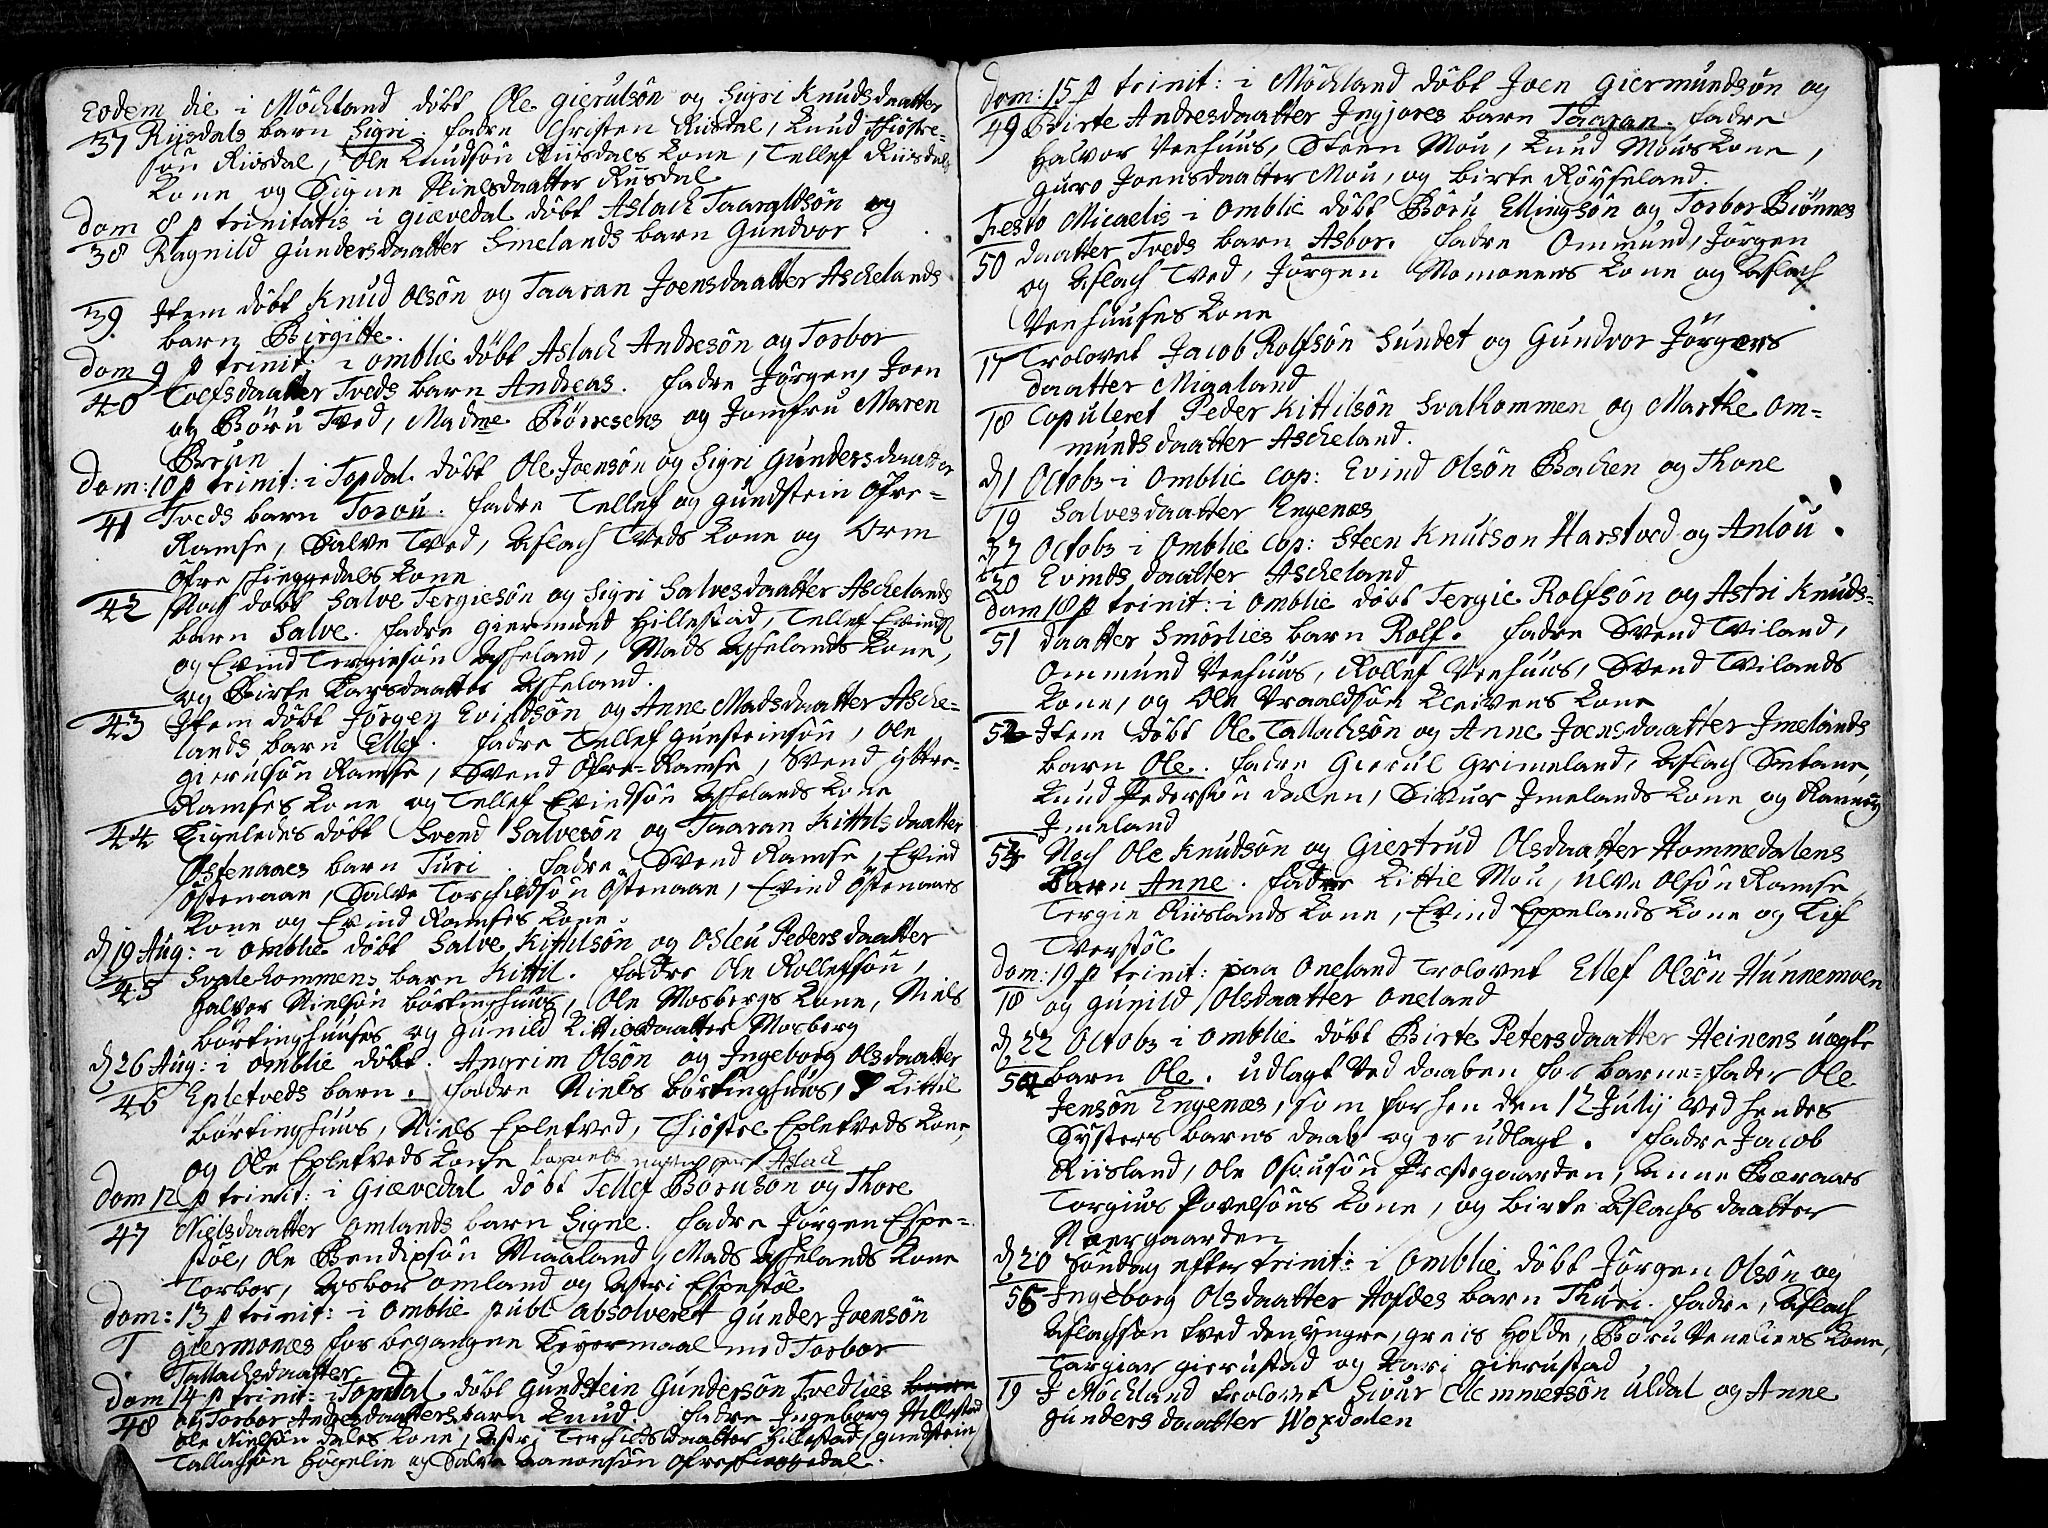 Eodem die i Möchland döbt Ole Gierulsön og Sigri Knudsdaatter
37 Riisdals barn Sigri. Fadre Christen Riisdal, Knud Thiöstre-
sön Riisdal, Ole Knudsön Riisdals Kone, Tellef Riisdals
Kone og Signe Nielsdaatter Riisdal
Dom 8 p trinitatis i Giævedal döbt Aslach Taaraldsön og
38 Ragnild Gundersdaatter Smelands barn Gundvor.
39 Item döbt Knud Olsön og Taaran Joensdaatter Aschelands
barn Birgitte.
Dom 9 p trinit: i Omblie döbt Aslach Andresön og Torbor
40 Toefsdaatter Tveds barn Andreas. Fadre Jörgen, Joen
og Böru Tved, Madme Börresens og Jomfru Maren
Brun
Dom: 10 p trinit: i Topdal döbt Ole Joensön og Sigri Gundersdaatter
41 Tveds barn Torou. Fadre Tellef og Gundstein Öfre-
Ramse, Salve Tved, Aslach Tveds Kone og Orm
Öfre Skieggedals Kone
42 Noch döbt Salve Tergiesön og Sigri Salvesdaatter Aschelands
barn Salve. Fadre Giermund Hillestad, Tellef Evinds
og Evind Tergiesön Asheland, Mads Ashelands Kone,
og Birte Larsdaatter Asheland.
43 Item döbt Jörgen Evindsön og Anne Madsdaatter Asche-
lands barn Ellef. Fadre Tellef Gunsteinsön, Ole
Gierulsön Ramse, Svend Öfre-Ramse, Svend Yttre-
Ramses Kone og Tellef Evindsön Ashelands Kone
44 Ligeledes döbt Svend Salvesön og Taaran Kittelsdaatter
Östenaaes barn Turi. Fadre Svend Ramse, Evind
Östenaae, Salve Torchildsön Östenaae, Evind Östenaaes
Kone og Evind Ramses Kone.
d 19 Aug: i Omblie döbt Salve Kittilsön og Osleu Pedersdaatter
45 Svalekommens barn Kittil. Fadre Ole Rollefsön,
Halvor Nielsön Börtinghuus, Ole Mosbergs Kone, Niels
Börtinghuuses og Gunild Kittilsdaatter Mosberg
d 26 Aug: i Omblie döbt. Angrim Olsön og Ingeborg Olsdaatter
46 Epletveds barn. Fadre Niels Börtinghuus, Kittil
Börtinghuus, Niels Epletved, Thiöstel Epletveds Kone,
og Ole Epletveds Kone barnets nafn var Aslach
Dom 12 p trinit: i Giævedal döbt Tellef Börusön og Thore
47 Nielsdaatter Omlands barn Signe. Fadre Jörgen Espe-
stöl, Ole Bendixsön Miaaland, Mads Ashelands Kone
Torbor, Asbor Omland og Astri Espestöl
Dom: 13 p trinit: i Omblie publ absolveret Gunder Joensön
1 Giermonæs for begangne Leyermaal med Torbor
Tallachsdaatter
Dom 14 p trinit: i Topdal döbt Gundstein Gundersön Tvedlies
48 og Torbor Andresdaatters barn Knud. Fadre Ingeborg Hillestad
Ole Nielsön Dales Kone, Astri Terchildsdaatter Hillestad, Gundstein
Tallachsön Högelie og Salve Aanonsön Öfreskieggedal.
Dom: 15 p trinit: i Möchland döbt Joen Giermundsön og
49 Birte Andresdaatter Ingjores barn Taaran. Fadre
Halvor Veehuus, Steen Mou, Knud Mous Kone,
Guro Joensdaatter Mou, og Birte Röyseland.
Festo Micaelis i Omblie döbt Böru Ellingsön og Torbor Biönnes
50 daatter Tveds barn Asbor. Fadre Ommund, Jörgen
og Aslach Tved, Jörgen Momonens Kone og Aslach
Veehuuses Kone
17 Trolovet Jacob Rolfsön Sundet og Gundvor Jörgens
daatter Migaland
18 Copuleret Peder Kittilsön Svalkommen og Marthe Om-
mundsdaatter Ascheland.
d 1 Octobr i Omblie cop: Evind Olsön Bachen og Thone
19 Salvesdaatter Engenæs
Octobr i Omblie cop: Steen Knutson Harstved og Anlou
20 Evindsdaatter Ascheland
Dom 18 p trinit: i Omblie döbt Tergie Rolfsön og Astri Knuds-
51 daatter Smörlies barn Rolf. Fadre Svend Tviland,
Ommund Veehuus, Rollef Veehuus, Svend Tvilands
Kone, og Ole Vraaldsön Kleivens Kone
52 Item döbt Ole Tallachsön og Anne Joensdaatter Imelands
barn Ole. Fadre Gierul Grimeland, Aslach Sebane,
Knud Pedersön Dalen, Sivur Imelands Kone og Ranneug
Imeland
53 Noch Ole Knudsön og Giertrud Olsdaatter Hommedalens
barn Anne. Fadre Kittil Mou, Ulve Olsön Ramse,
Tergie Riislands Kone, Evind Eppelands Kone og Lif
Tverstöl
Dom: 19 p trinit: paa Oneland trolovet Ellef Olsön Hunnemoen
18 og Gunild Olsdaatter Oneland
d 22 Octobr i Omblie döbt Birte Petersdaatter Heinens uægte
54 barn Ole. Udlagt ved Daaben for Barne-Fader Ole
Jensön Engenæs, som forhen den 12 Julij ved hendes
Systers barns daab og er udlagt. Fadre Jacob
Riisland, Ole Osousön Præstegaarden, Anne Beraaes
Torgius Povelsöns Kone, og Birte Aslachsdaatter
Noergaarden
d 20 Söndag efter trinit: i Omblie döbt Jörgen Olsön og
55 Ingeborg Olsdaatter Hofdes barn Thuri. Fadre, Aslach
Aslachsön Tved den yngre, Greis Hofde, Böru Veneliens Kone,
Targier Gierustad og Kari Gierustad
19 I Möchland trolovet Sivur Clemmetsön Uldal og Anne
Gundersdaatter Woxdalen